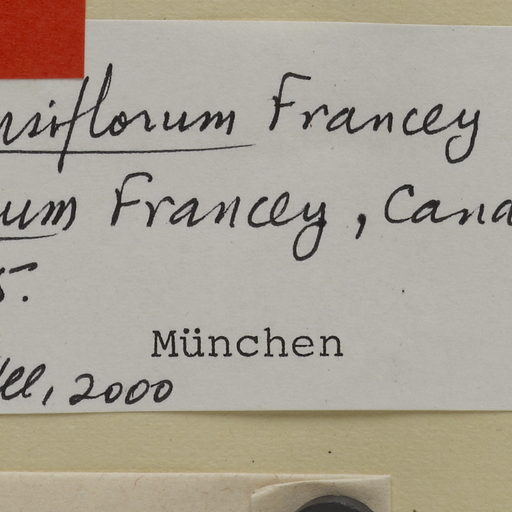 nsiflorum Francey
um Francey, Cand
5.
München
ell, 2000